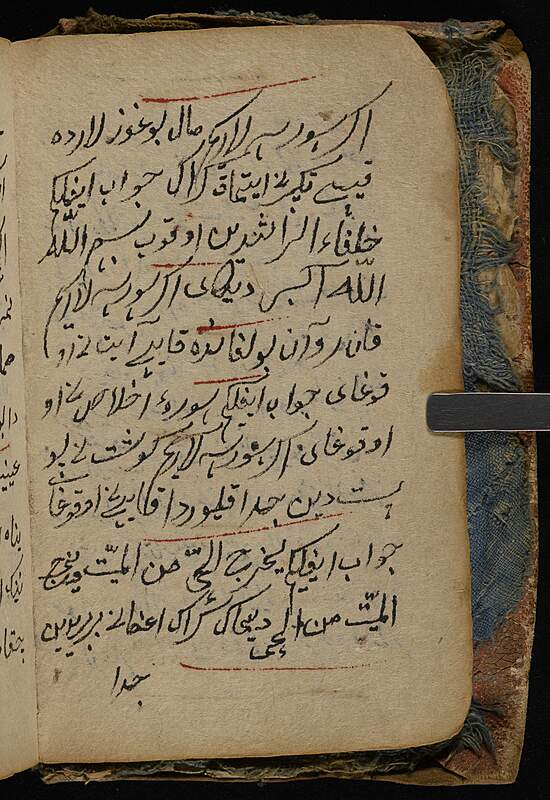 اکر سورسه لارکم مال بوغوز لارده
قیسی تکبیرنی ایتماق کراک جواب ایغیل کیم
خلفاء الراشدین اوقوب بسم الله
الله اکبر دیکای اکر سورسه لارکیم
قان روان بولغانده قایسی آیت نی او
قوغای جواب ایغیل کیم سورهٔ اخلاص نی او
اوقوغای اکر سورسه لارکیم کوشت نی پو
ست دین جدا قیلوردا قایسی نی اوقوغای
جواب ایغیل کیم یخرج الحیّ من المیّت ویخرج
المیّت من الحی دیماک کراک اعضالنی بربریدین
جدا